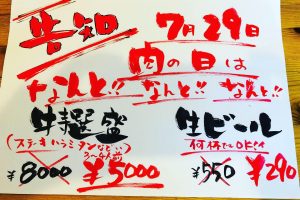 告知 7月29日
肉の日は
なんと!! なんと!! なんと!!
牛特選盛 生ビール
(ステーキ ハラミ タンなど...) 何杯でもOK!!
3〜4人前
¥8000 ¥5000 ¥550 ¥290